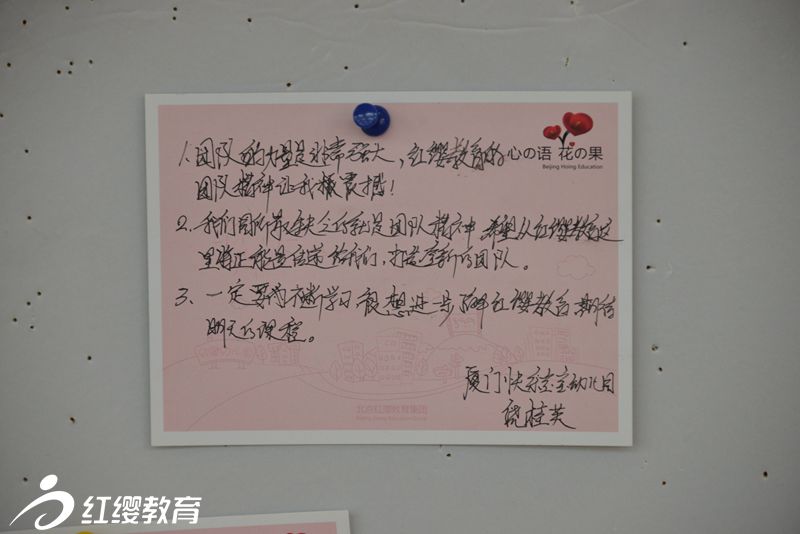 心の语 花の果
Beijing Hoing Education
1. 团队的力量是非常强大，红缨教育的
团队精神让我很震撼！
2. 我们园所最缺乏的就是团队精神，希望从红缨教育这
里将正能量传递给我们，打造全新的团队。
3. 一定要不断学习 很想进一步了解红缨教育 期待
明天的课程。
厦门快乐宝幼儿园
桂英
北京红缨教育集团
Beijing Hoing Education Group
红缨教育